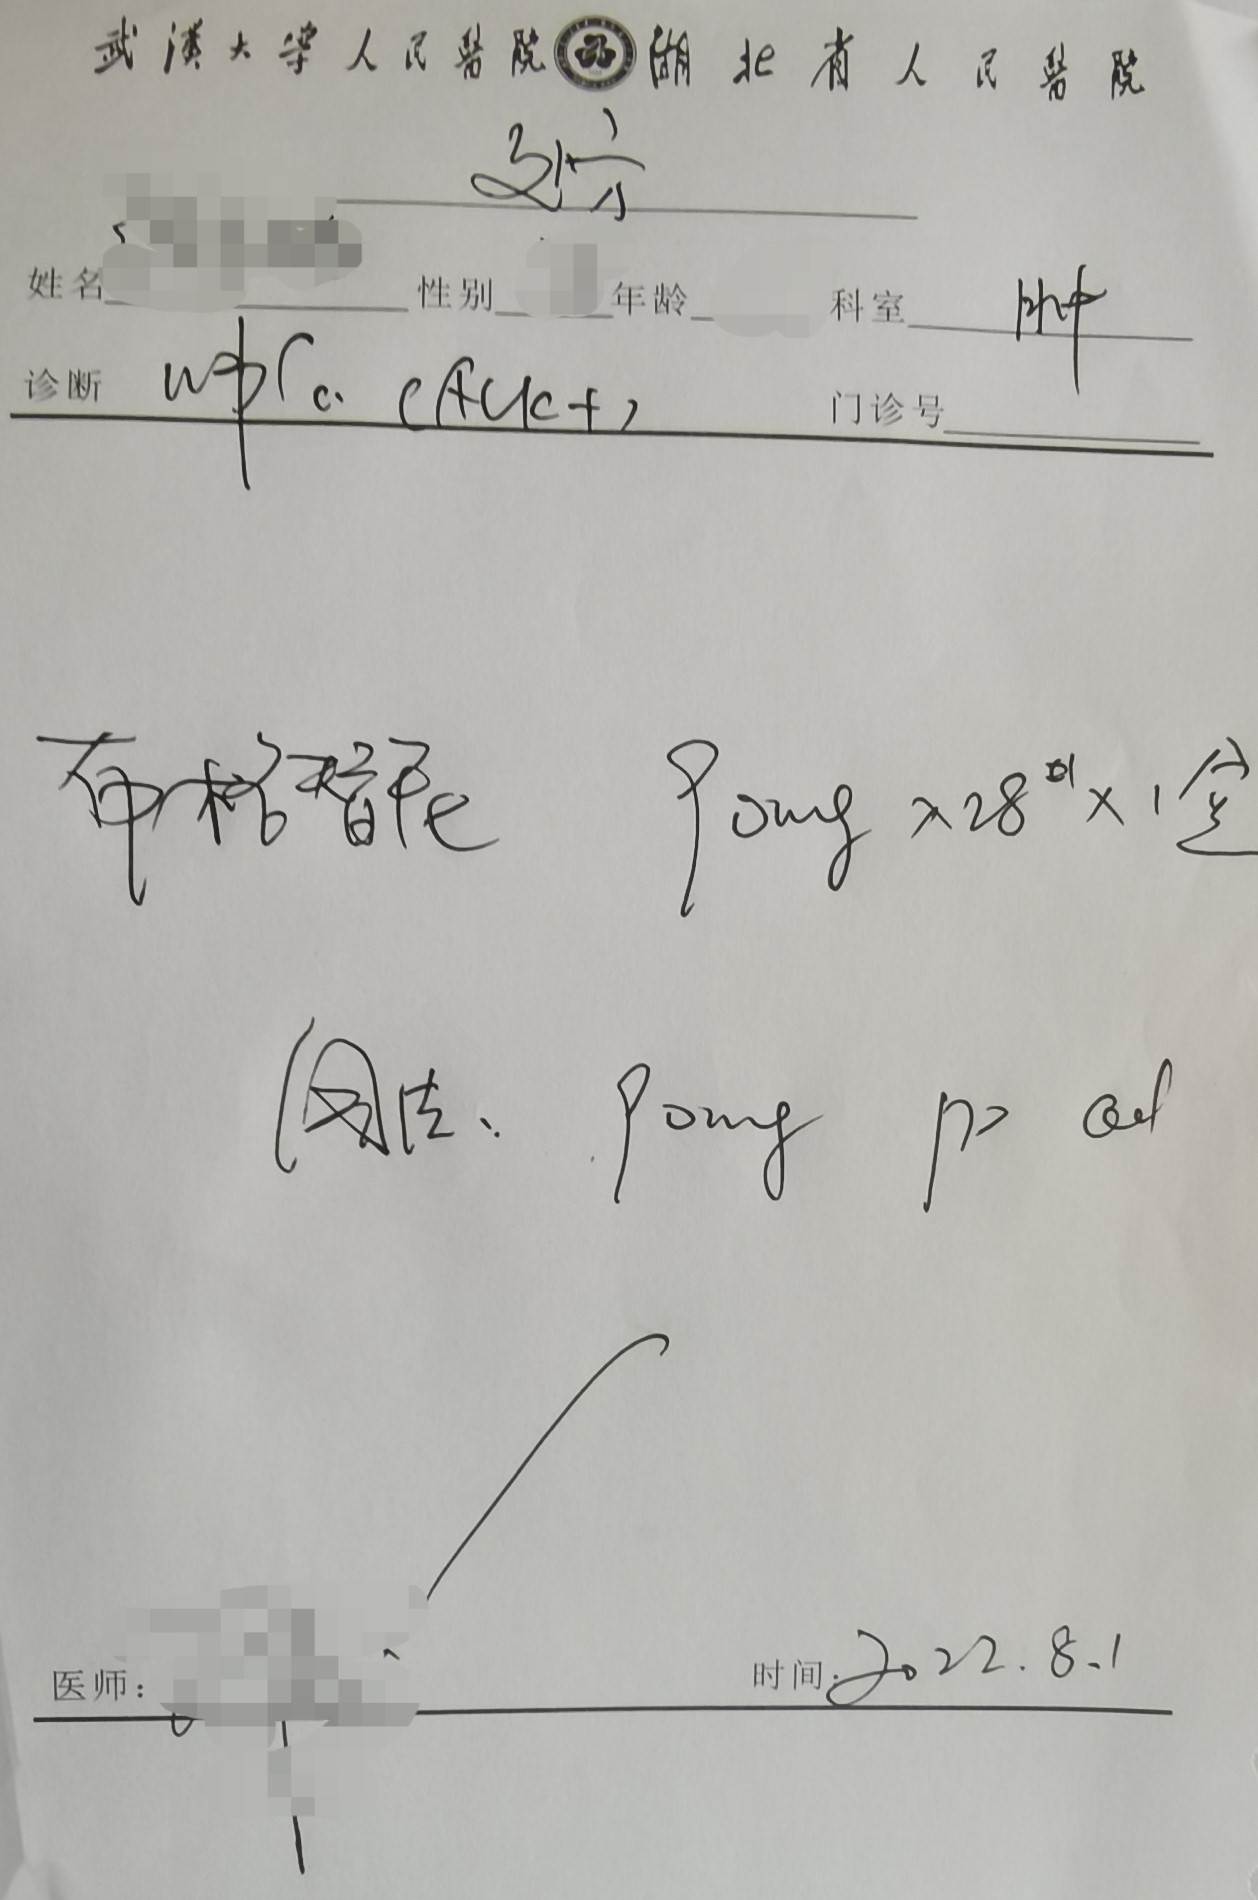 武漢大學人民醫院 湖北省人民醫院
处方
姓名 性别 年龄 科室 肿
诊断 肺Ca (ALK+) 门诊号
布格替尼 90mg x28片x1盒
用法: 90mg po qd
医师: 时间: 2022.8.1